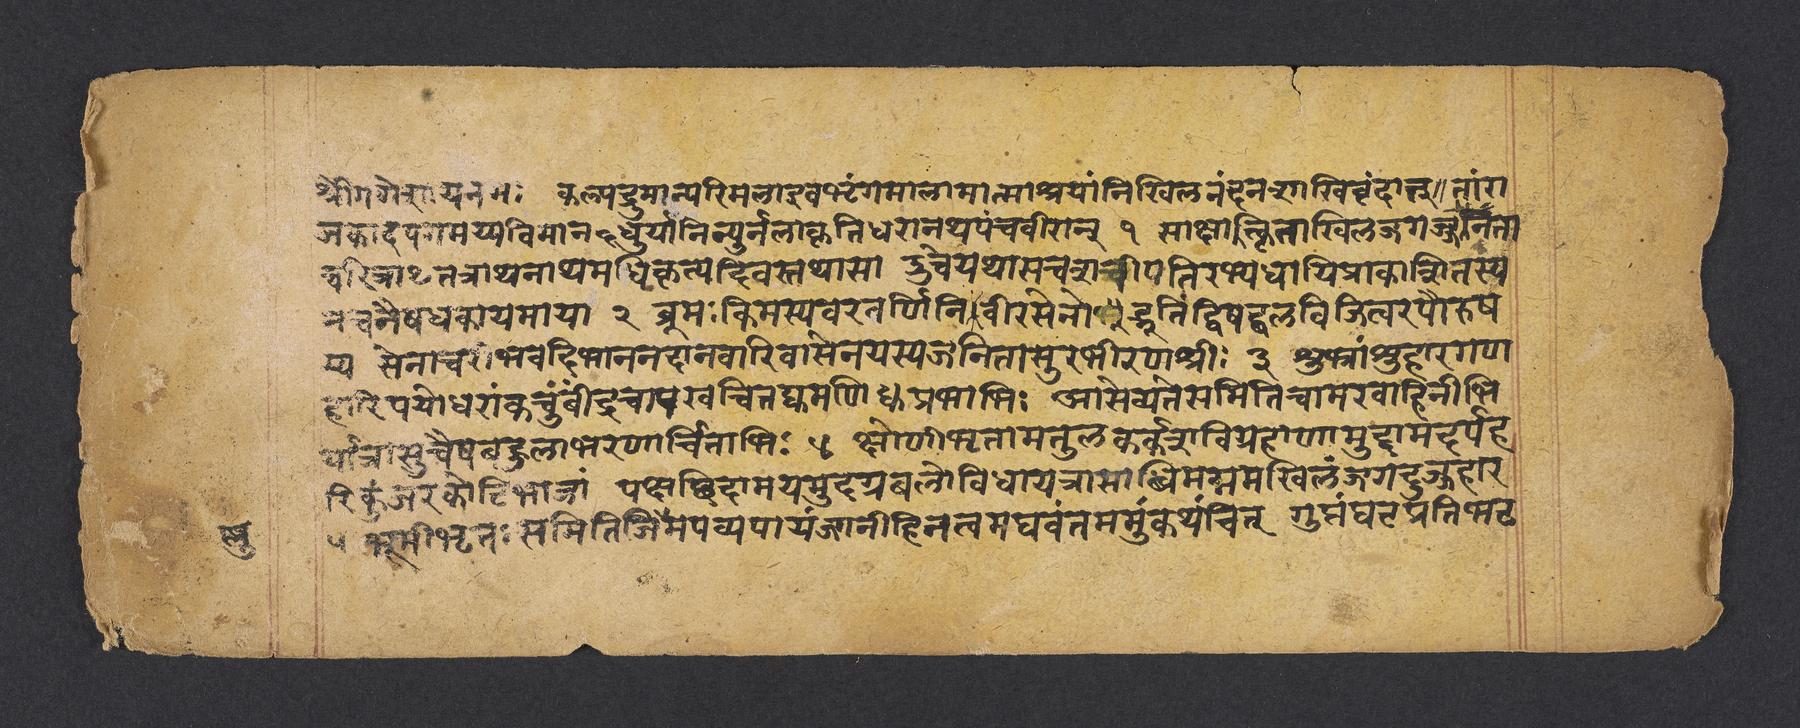 श्रीगणेशायनमः कल्पद्रुमान्परिमलाइवभृंगमालामात्माश्रयांनिखिलनंदनशाखिवृंदात्॥ तांरा
जकादपगमय्यविमानधुर्यानिन्युर्नलाकृतिधरानथपंचवीरान् १ साक्षात्कृताखिलजगज्जनता
चरित्रातत्राथनाथमधिकृत्यदिवस्तथासा ऊचेयथासचशचीपतिरभ्यधायिप्राकाशितस्य
नचनैषधकायमाया २ ब्रूमःकिमस्यवरवर्णिनिवीरसेनोद्भूतिंद्विषद्बलविजित्वरपौरुष
स्य सेनाचरीभवदिभाननदानवारिवासेनयस्यजनितासुरभीरणश्रीः ३ शुभ्रांशुहारगण
हारिपयोधरांकचुंबींद्रचापखचितद्युमणिप्रभाभिः आसेव्यतेसमितिचामरवाहिनीभि
र्यात्रासुचैषबहुलाभरणार्चिताभिः ४ क्षोणीभृतामतुलकर्कशविग्रहाणामुद्दामदर्पह
रिकुंजरकोटिभाजां पक्षच्छिदामयमुदग्रबलोविधाय जगदुज्जहार
५ भूमीभृतःसमितिजिष्णुमपव्यपायंजानीहिनत्वमघवंतममुंकथंचित् गुप्तंघटप्रतिभट